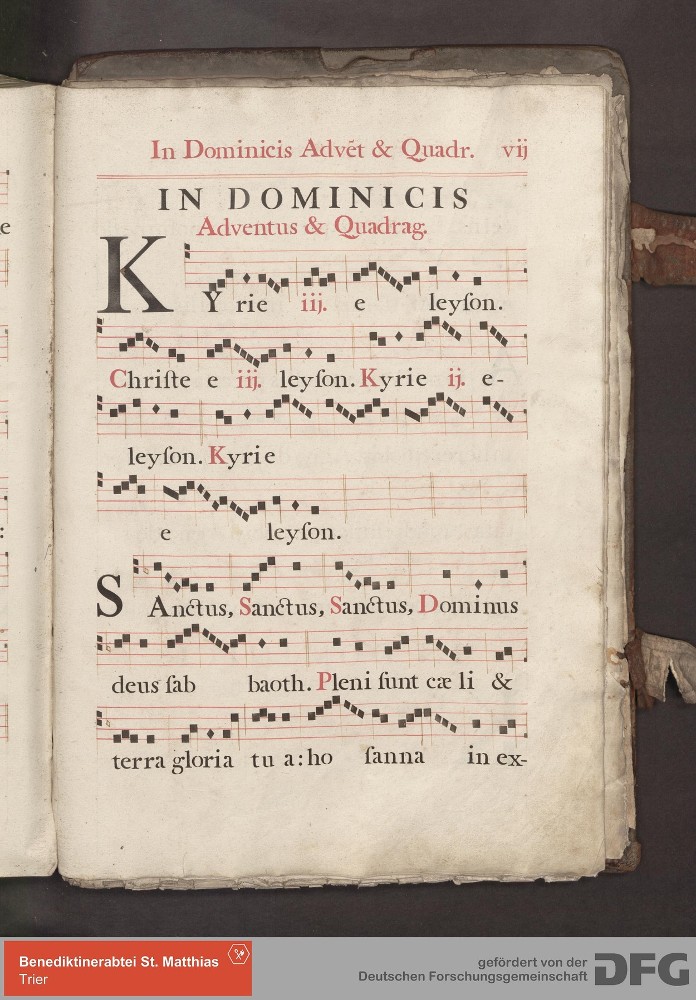 In Dominicis Advēt & Quadr. vij
IN DOMINICIS
Adventus & Quadrag.
KYrie iij. e leyſon.
Chriſte e iij. leyſon. Kyrie ij. e-
leyſon. Kyrie
e leyſon.
SAnctus, Sanctus, Sanctus, Dominus
deus ſab baoth. Pleni ſunt cæ li &
terra gloria tu a: ho ſanna in ex-
e
:
Benediktinerabtei St. Matthias
Trier
gefördert von der
Deutschen Forschungsgemeinschaft
DFG